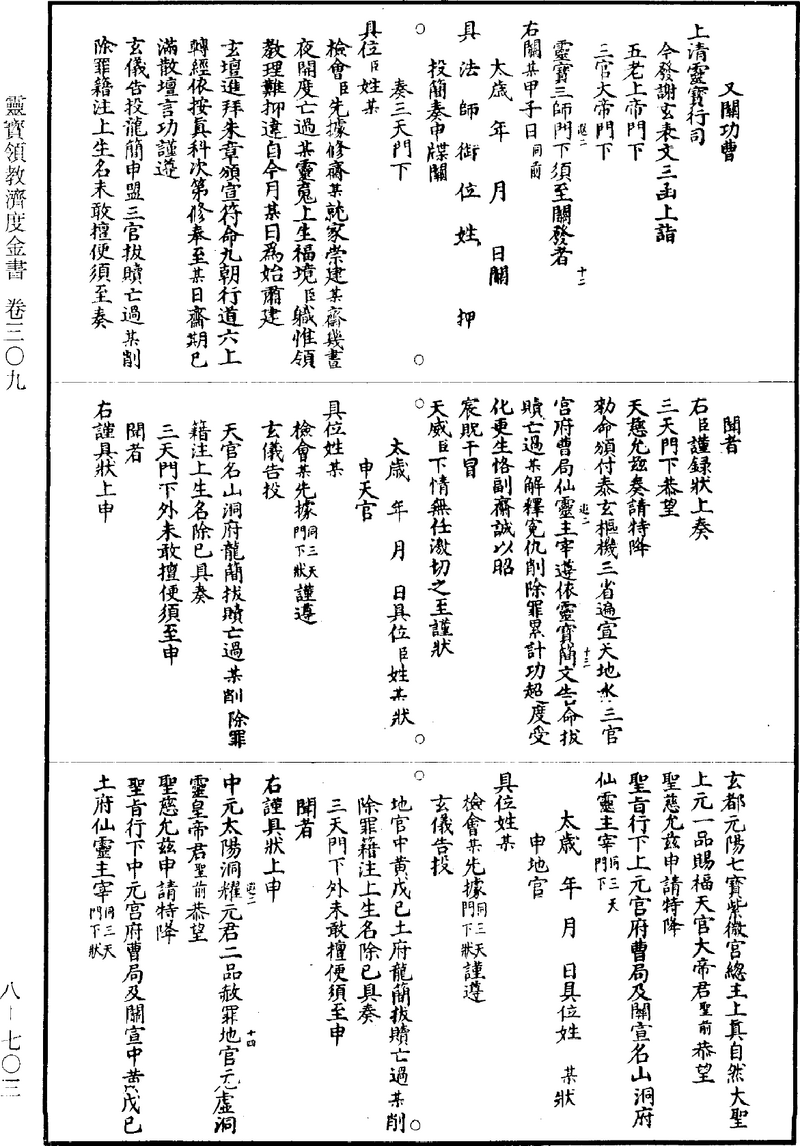 又關功曹
上清靈寶行司
今發謝玄表文三函上詣
五老上帝門下
三官大帝門下
靈寶三師門下須至關發者
右關某甲子日同前
太歲年月日關
具法師銜位姓押
投簡奏申牒關
奏三天門下
具位臣姓某
檢會臣先據修齋某就家崇建某齋幾晝
夜開度亡過某靈䰟上生福境臣職惟領
教理難抑違自今月某日為始肅建
玄壇進拜朱章頒宣符命九朝行道六上
轉經依按真科次第修奉至某日齋期已
滿散壇言功謹遵
玄儀告投龍簡申盟三官拔贖亡過某削
除罪籍注上生名未敢擅便須至奏
聞者
右臣謹錄狀上奏
三天門下恭望
天慈允兹奏請特降
勑命頒付泰玄樞機三省遍宣天地水三官
宮府曹局仙靈主宰遵依靈寶簡文告命拔
贖亡過某解釋冤仇削除罪累計功超度受
化更生恪副齋誠以昭
宸貺干冒
天威臣下情無任激切之至謹狀
太歲年月日具位臣姓某狀
申天官
具位姓某
檢會某先據同三天門下狀謹遵
玄儀告投
天官名山洞府龍簡拔贖亡過某削除罪
籍注上生名除已具奏
三天門下外未敢擅便須至申
聞者
右謹具狀上申
玄都元陽七寶紫微宮總主上真自然大聖
上元一品賜福天官大帝君聖前恭望
聖慈允兹申請特降
聖旨行下上元宮府曹局及關宣名山洞府
仙靈主宰同三天門下
太歲年月日具位姓某狀
申地官
具位姓某
檢會某先據同三天門下狀謹遵
玄儀告投
地官中黄戊己土府龍簡拔贖亡過某削
除罪籍注上生名除已具奏
三天門下外未敢擅便須至申
聞者
右謹具狀上申
中元太陽洞耀元君二品赦罪地官元虛洞
靈皇帝君聖前恭望
聖慈允兹申請特降
聖旨行下中元宮府曹局及關宣中黄戊己
土府仙靈主宰同三天門下狀
靈寶領教濟度金書 卷三〇九
八—七〇三